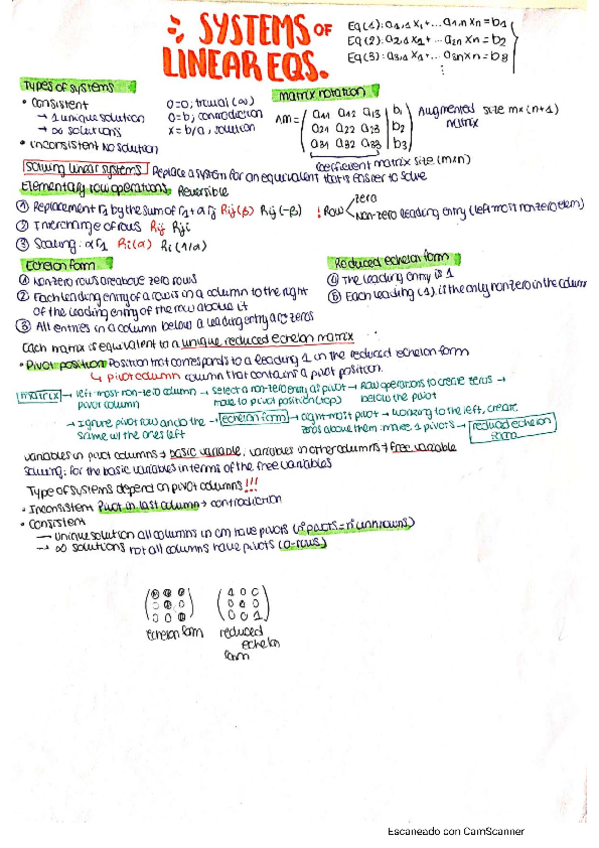 SYSTEMS OF
LINEAR EQS.
Eq(1): a1,1 x1 + ... a1,n xn = b1
Eq(2): a2,1 x1 + ... a2n xn = b2
Eq(3): a3,1 x1 + ... a3n xn = b3
Types of systems
• Consistent
→ 1 unique solution
→ ∞ solutions
• Inconsistent No solution
0=0; trivial (∞)
0=b; contradiction
x = b/a, solution
Matrix notation
AM = ( a11 a12 a13 | b1
a21 a22 a23 | b2
a31 a32 a33 | b3 )
Augmented size m×(n+1)
matrix
coefficient matrix size (m×n)
Solving linear systems Replace a system for an equivalent that is easier to solve
Elementary row operations Reversible
① Replacement rj by the sum of Rij(β) Rij(-β)
! Row zero
non-zero leading entry (left most nonzero elem)
② Interchange of rows Rij Rji
③ Scaling: αr1 Ri(α) Ri(1/α)
Echelon form
① Nonzero rows are above zero rows
② Each leading entry of a row is in a column to the right
of the leading entry of the row above it
③ All entries in a column below a leading entry are zeros
Reduced echelon form
④ The leading entry is 1
⑤ Each leading (1) is the only nonzero in the column
Each matrix is equivalent to a unique reduced echelon matrix
• Pivot position Position that corresponds to a leading 1 in the reduced echelon form
↳ pivot column column that contains a pivot position.
matrix → left-most non-zero column → select a non-zero entry as pivot → Row operations to create zeros →
pivot column move to pivot position (top) below the pivot
→ Ignore pivot row and do the → echelon form → right-most pivot → working to the left, create
same w/ the ones left zeros above them: make 1 pivots → reduced echelon
form
variables in pivot columns → basic variable. variables in other columns → free variable
Solving: for the basic variables in terms of the free variables
Type of systems depend on pivot columns!!!
• Inconsistent Pivot in last column → contradiction
• Consistent
→ unique solution all columns in cm have pivots (nº pivots = nº unknowns)
→ ∞ solutions not all columns have pivots (0=rows)
echelon form
1 0 0
0 0
0 0 1
reduced
echelon
form
Escaneado con CamScanner